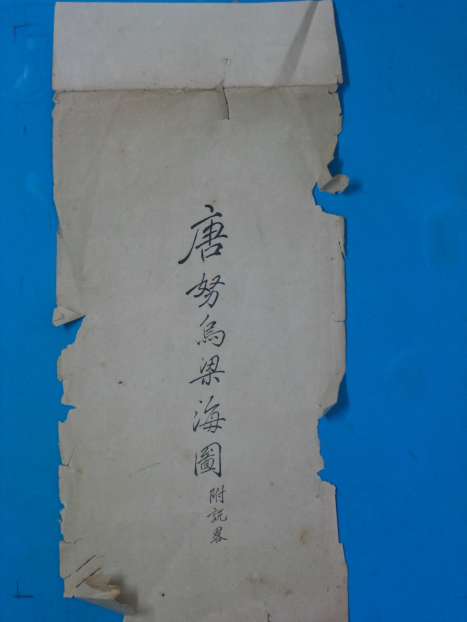 唐努烏梁海圖附説畧